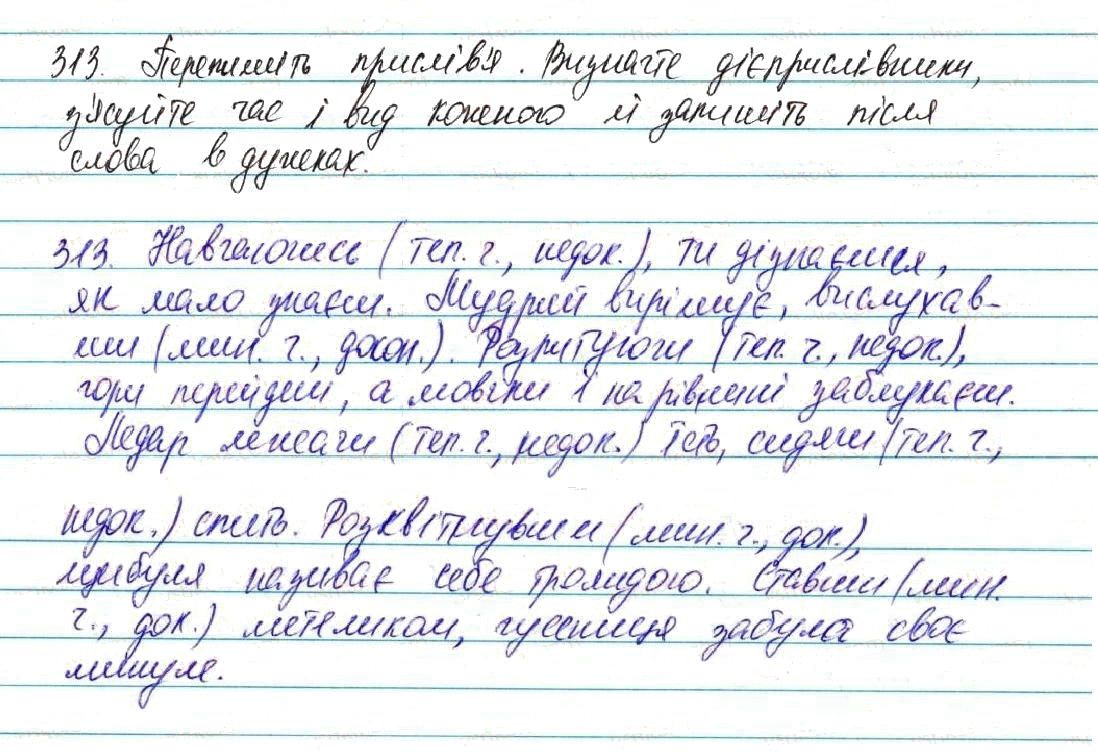 313. Перепишіть прислів'я. Визначте дієприслівники,
з'ясуйте час і вид кожного й запишіть після
слова в дужках.
313. Навчаючись (теп. г., недок.), ти дізнаєшся,
як мало знаєш. Мудрий вирішує, вислухав-
ши (мин. г., докон.). Розпитуючи (теп. г., недок.),
гори перейдеш, а мовчки і на рівнині заблукаєш.
Ледар лежачи (теп. г., недок.) їсть, сидячи (теп. г.,
недок.) спить. Розквітнувши (мин. г., док.),
цибуля називає себе трояндою. Ставши (мин.
г., док.) метеликом, гусениця забула своє
минуле.